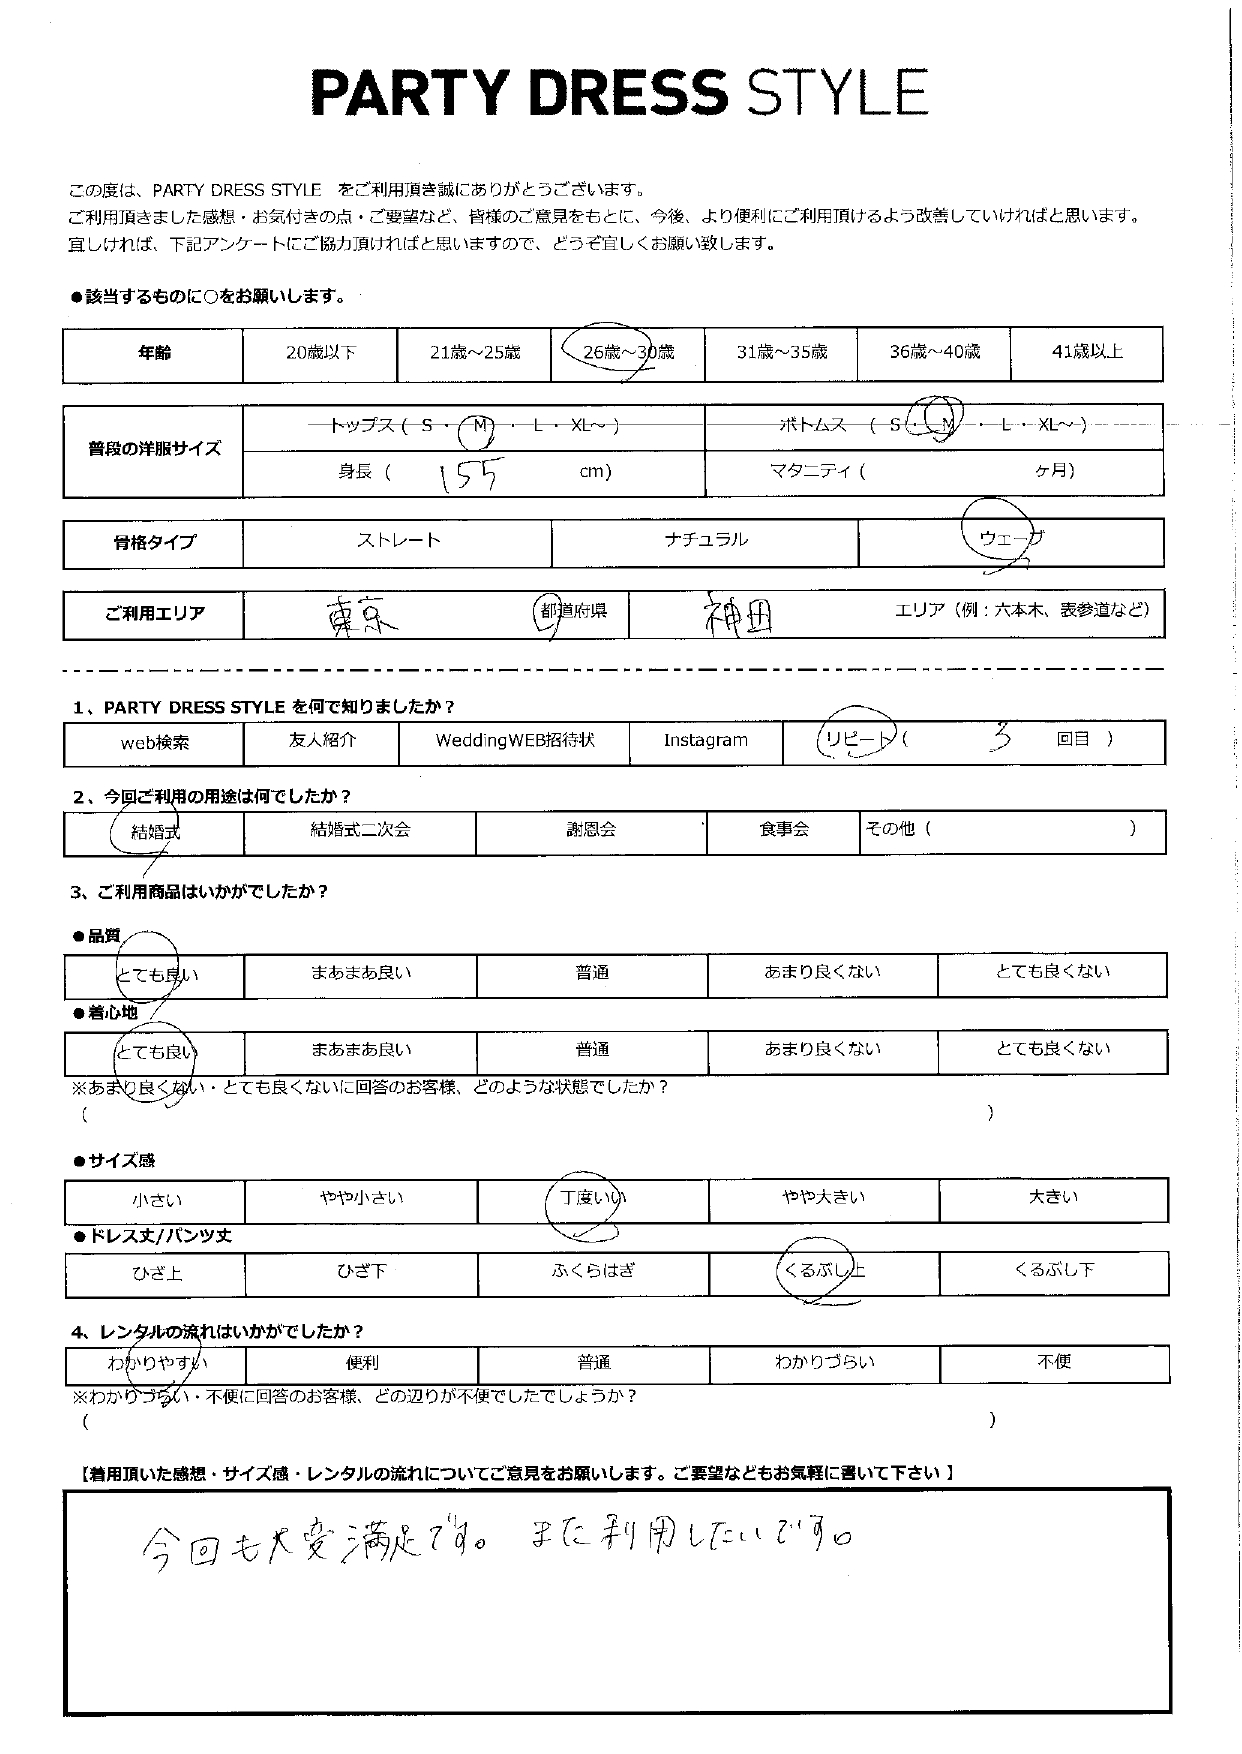 PARTY DRESS STYLE
この度は、PARTY DRESS STYLE　をご利用頂き誠にありがとうございます。
ご利用頂きました感想・お気付きの点・ご要望など、皆様のご意見をもとに、今後、より便利にご利用頂けるよう改善していければと思います。
宜しければ、下記アンケートにご協力頂ければと思いますので、どうぞ宜しくお願い致します。
●該当するものに○をお願いします。
年齢 20歳以下 21歳～25歳 26歳～30歳 31歳～35歳 36歳～40歳 41歳以上
普段の洋服サイズ
トップス ( S ・ M ・ L ・ XL～ ) ボトムス ( S ・ M ・ L ・ XL～ )
身長 ( 155 cm) マタニティ ( ヶ月)
骨格タイプ ストレート ナチュラル ウェーブ
ご利用エリア 東京 都道府県 神田 エリア（例：六本木、表参道など）
1、PARTY DRESS STYLE を何で知りましたか？
web検索 友人紹介 WeddingWEB招待状 Instagram リピート ( 3 回目 )
2、今回ご利用の用途は何でしたか？
結婚式 結婚式二次会 謝恩会 食事会 その他 ( )
3、ご利用商品はいかがでしたか？
●品質
とても良い まあまあ良い 普通 あまり良くない とても良くない
●着心地
とても良い まあまあ良い 普通 あまり良くない とても良くない
※あまり良くない・とても良くないに回答のお客様、どのような状態でしたか？
( )
●サイズ感
小さい やや小さい 丁度いい やや大きい 大きい
●ドレス丈/パンツ丈
ひざ上 ひざ下 ふくらはぎ くるぶし上 くるぶし下
4、レンタルの流れはいかがでしたか？
わかりやすい 便利 普通 わかりづらい 不便
※わかりづらい・不便に回答のお客様、どの辺りが不便でしたでしょうか？
( )
【着用頂いた感想・サイズ感・レンタルの流れについてご意見をお願いします。ご要望などもお気軽に書いて下さい 】
今回も大変満足です。また利用したいです。